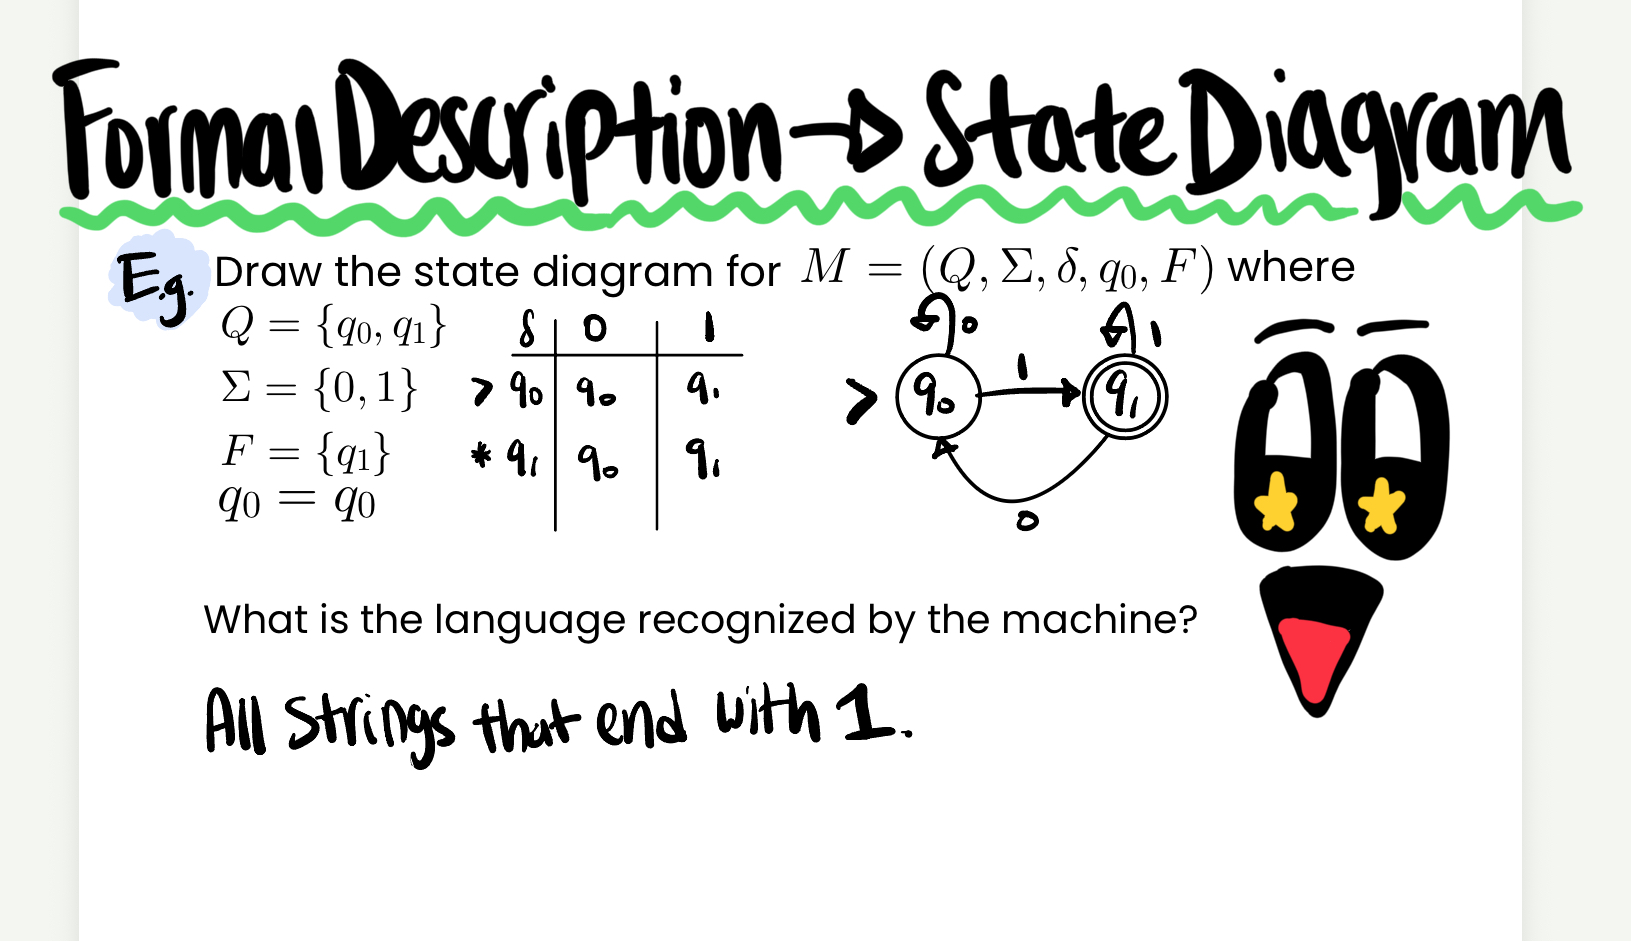 Formal Description → State Diagram
E.g. Draw the state diagram for M = (Q, Σ, δ, q₀, F) where
Q = {q₀, q₁}
Σ = {0, 1}
F = {q₁}
q₀ = q₀
δ 0 1
> q₀ q₀ q₁
* q₁ q₀ q₁
0 1
> q₀ 1 q₁
0
What is the language recognized by the machine?
All strings that end with 1.